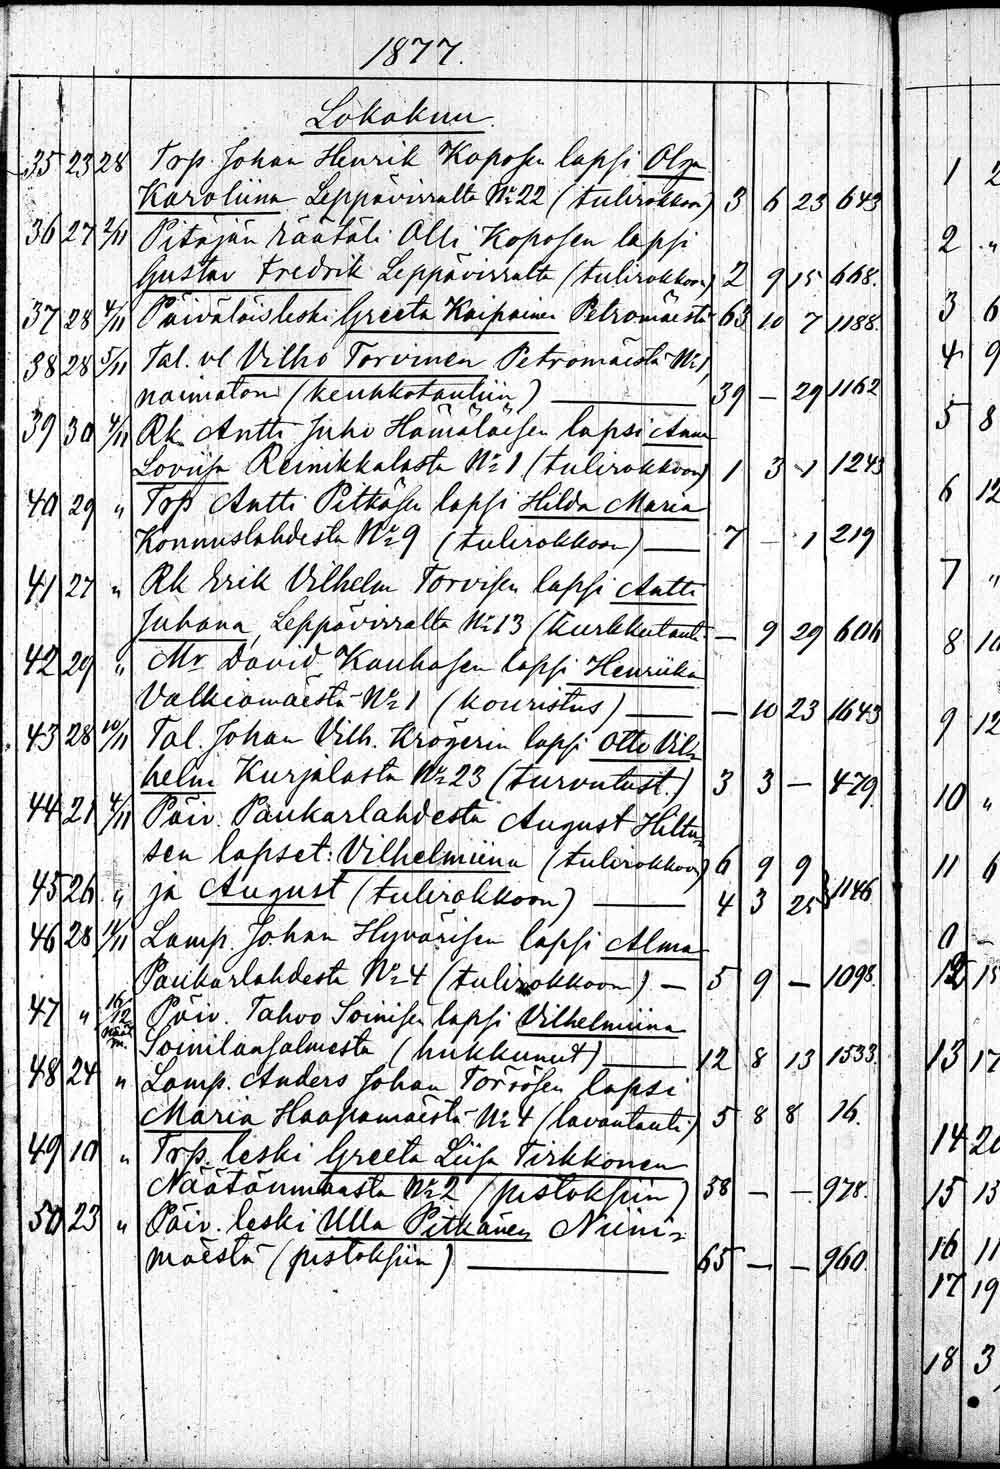 1877.
Lokakuu.
35 23 28 Trp. Johan Henrik Koposen lapsi Olga
Karoliina Leppävirralta No 22 (tulirokkoon) 3 6 23 643
36 27 2/11 Pitäjän räätäli Olli Koposen lapsi
Gustav Fredrik Leppävirralta (tulirokkoon) 2 9 15 668.
37 28 4/11 Päiväläisleski Greeta Kaipainen Petromäestä 63 10 7 1188.
38 28 5/11 Tal. vl Vilho Torvinen Petromäestä No 1,
naimaton (keuhkotautiin) — 39 — 29 1162
39 30 4/11 Rk Antti Juho Hämäläisen lapsi Anna
Loviisa Reinikkalasta No 1 (tulirokkoon) 1 3 1 1243
40 29 " Trp Antti Pitkäsen lapsi Hilda Maria
Konnuslahdesta No 9 (tulirokkoon) — 7 — 1 219
41 27 " Rk Erik Vilhelm Torvisen lapsi Antti
Juhana, Leppävirralta No 13 (kurkkutauti — 9 29 606
42 29 " Mr David Kauhasen lapsi Henriika
Valkiamäestä No 1 (kouristus) — — 10 23 1643
43 28 10/11 Tal. Johan Vilh. Krögerin lapsi Otto Vil-
helm Kurjalasta No 23 (turvutust.) 3 3 — 479.
44 21 4/11 Päiv. Paukarlahdesta August Hiltu-
sen lapset: Vilhelmiina (tulirokkoon) 6 9 9
45 26 " ja August (tulirokkoon) — 4 3 25 } 1146
46 28 11/11 Lamp. Johan Hyvärisen lapsi Alma
Paukarlahdesta No 4 (tulirokkoon) — 5 9 — 1098.
47 " 16/12 Päiv. Tahvo Soinisen lapsi Vilhelmiina
Soinilansalmesta (hukkunut) — 12 8 13 1533.
48 24 " Lamp. Anders Johan Törrösen lapsi
Maria Haapamäestä No 4 (lavantauti) 5 8 8 16.
49 10 " Trp. leski Greeta Liisa Tirkkonen
Näätänmaasta No 2 (pistoksiin) 58 — — 978.
50 23 " Päiv. leski Ulla Pitkänen Niini-
mäestä (pistoksiin) — 65 — — 960.
1 2
2 "
3 6
4 9
5 8
6 12
7 "
8 10
9 12
10 "
11 6
12 15
13 17
14 20
15 13
16 11
17 19
18 3